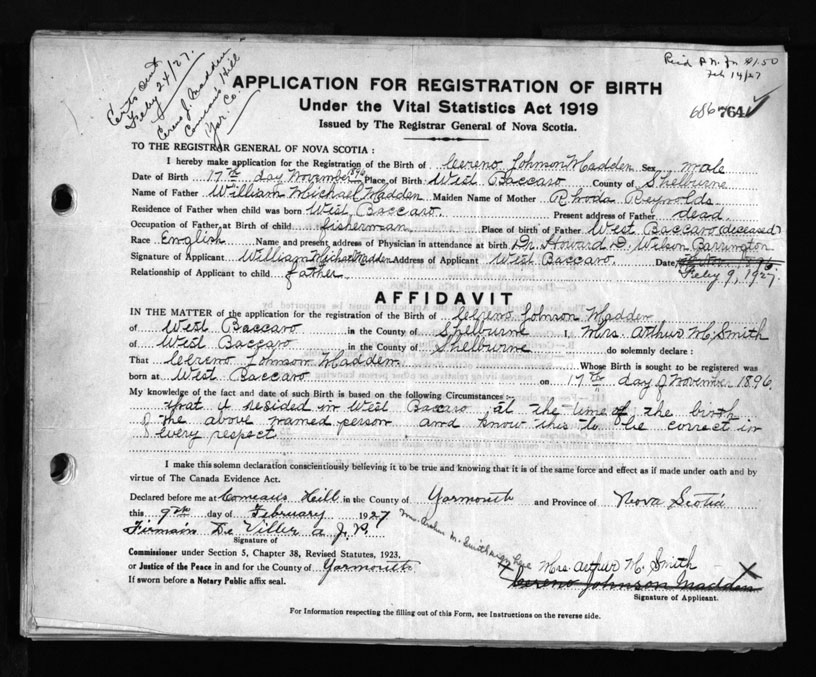 Certs Sent
Feby 24/27.
Cereno J. Madden
Comeau's Hill
Yar. Co.
Feb 14/27
APPLICATION FOR REGISTRATION OF BIRTH
Under the Vital Statistics Act 1919
Issued by The Registrar General of Nova Scotia.
764
TO THE REGISTRAR GENERAL OF NOVA SCOTIA:
I hereby make application for the Registration of the Birth of Cereno Johnson Madden Sex male
Date of Birth 17th day November 1896 Place of Birth West Baccaro County of Shelburne
Name of Father William Michael Madden Maiden Name of Mother Rhoda Reynolds
Residence of Father when child was born West Baccaro. Present address of Father dead.
Occupation of Father at Birth of child fisherman Place of birth of Father West Baccaro (deceased)
Race English Name and present address of Physician in attendance at birth Dr. Howard D. Wilson Barrington
Signature of Applicant William Michael Madden Address of Applicant West Baccaro. Date,
Feby 9, 1927.
Relationship of Applicant to child father
AFFIDAVIT
IN THE MATTER of the application for the registration of the Birth of Cereno Johnson Madden
of West Baccaro in the County of Shelburne I, Mrs. Arthur M. Smith
of West Baccaro in the County of Shelburne do solemnly declare:
That Cereno Johnson Madden Whose Birth is sought to be registered was
born at West Baccaro on 17th day of November 1896
My knowledge of the fact and date of such Birth is based on the following Circumstances
that I resided in West Baccaro at the time of the birth
of the above named person and know this to be correct in
every respect
I make this solemn declaration conscientiously believing it to be true and knowing that it is of the same force and effect as if made under oath and by
virtue of The Canada Evidence Act.
Declared before me at Comeau's Hill in the County of Yarmouth and Province of Nova Scotia
this 9th day of February 1927
Firmain De Viller a J.P.
Signature of
Commissioner under Section 5, Chapter 38, Revised Statutes, 1923, Mrs. Arthur M. Smith
or Justice of the Peace in and for the County of Yarmouth X Cereno Johnson Madden X
If sworn before a Notary Public affix seal.
Signature of Applicant.
For Information respecting the filling out of this Form, see Instructions on the reverse side.